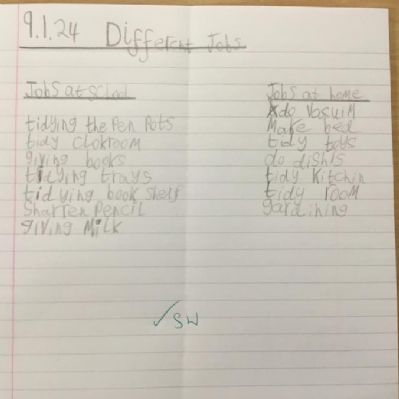 9.1.24 Different Jobs
Jobs at school
tidying the Pen Pots
tidy clokroom
giving books
tidying trays
tidying book shelf
Sharpen Pencil
giving Milk
Jobs at home
do vaquim
Make bed
tidy toys
do dishis
tidy kitchin
tidy room
gardining
✓ SW